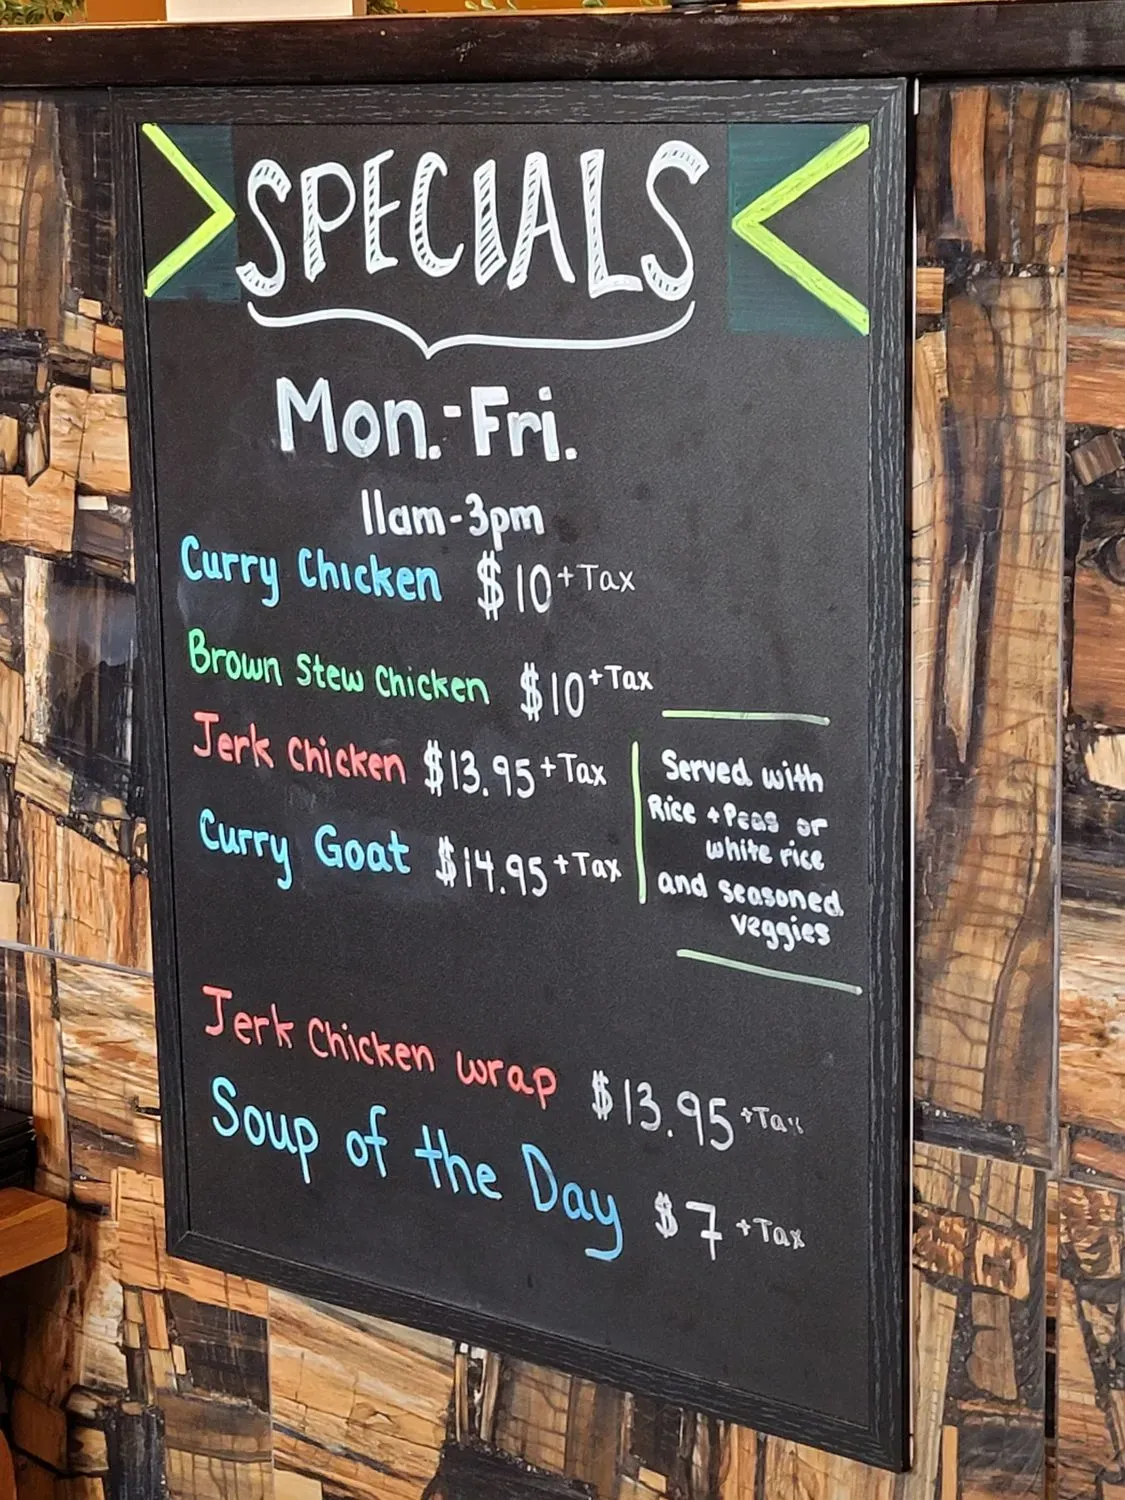 SPECIALS
Mon.-Fri.
11am-3pm
Curry Chicken $10 +Tax
Brown Stew Chicken $10 +Tax
Jerk Chicken $13.95 +Tax
Curry Goat $14.95 +Tax
Served with
Rice + Peas or
white rice
and seasoned
veggies
Jerk Chicken wrap $13.95 +Tax
Soup of the Day $7 +Tax